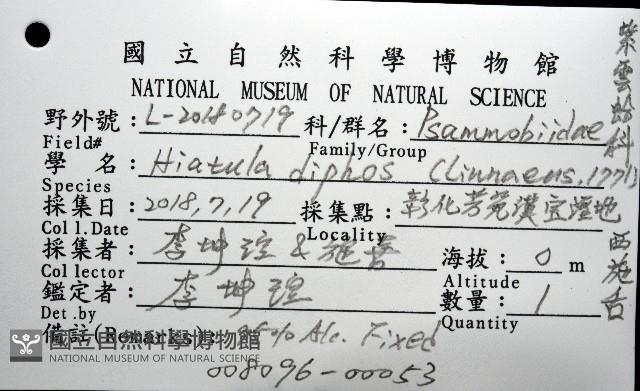 國立自然科學博物館
NATIONAL MUSEUM OF NATURAL SCIENCE
野外號：L-20180719 科/群名：Psammobiidae
Field# Family/Group
學 名：Hiatula diphos (Linnaeus, 1771)
Species
採集日：2018,7,19 採集點：彰化芳苑漢宝溼地
Coll.Date Locality
採集者：李坤瑄 & 海拔：0 m
Collector Altitude
鑑定者：李坤瑄 數量：1
Det.by Quantity
備註(Remarks)： 95% Alc. Fixed
國立自然科學博物館
NATIONAL MUSEUM OF NATURAL SCIENCE
008096-00053
紫雲蛤科
西施舌